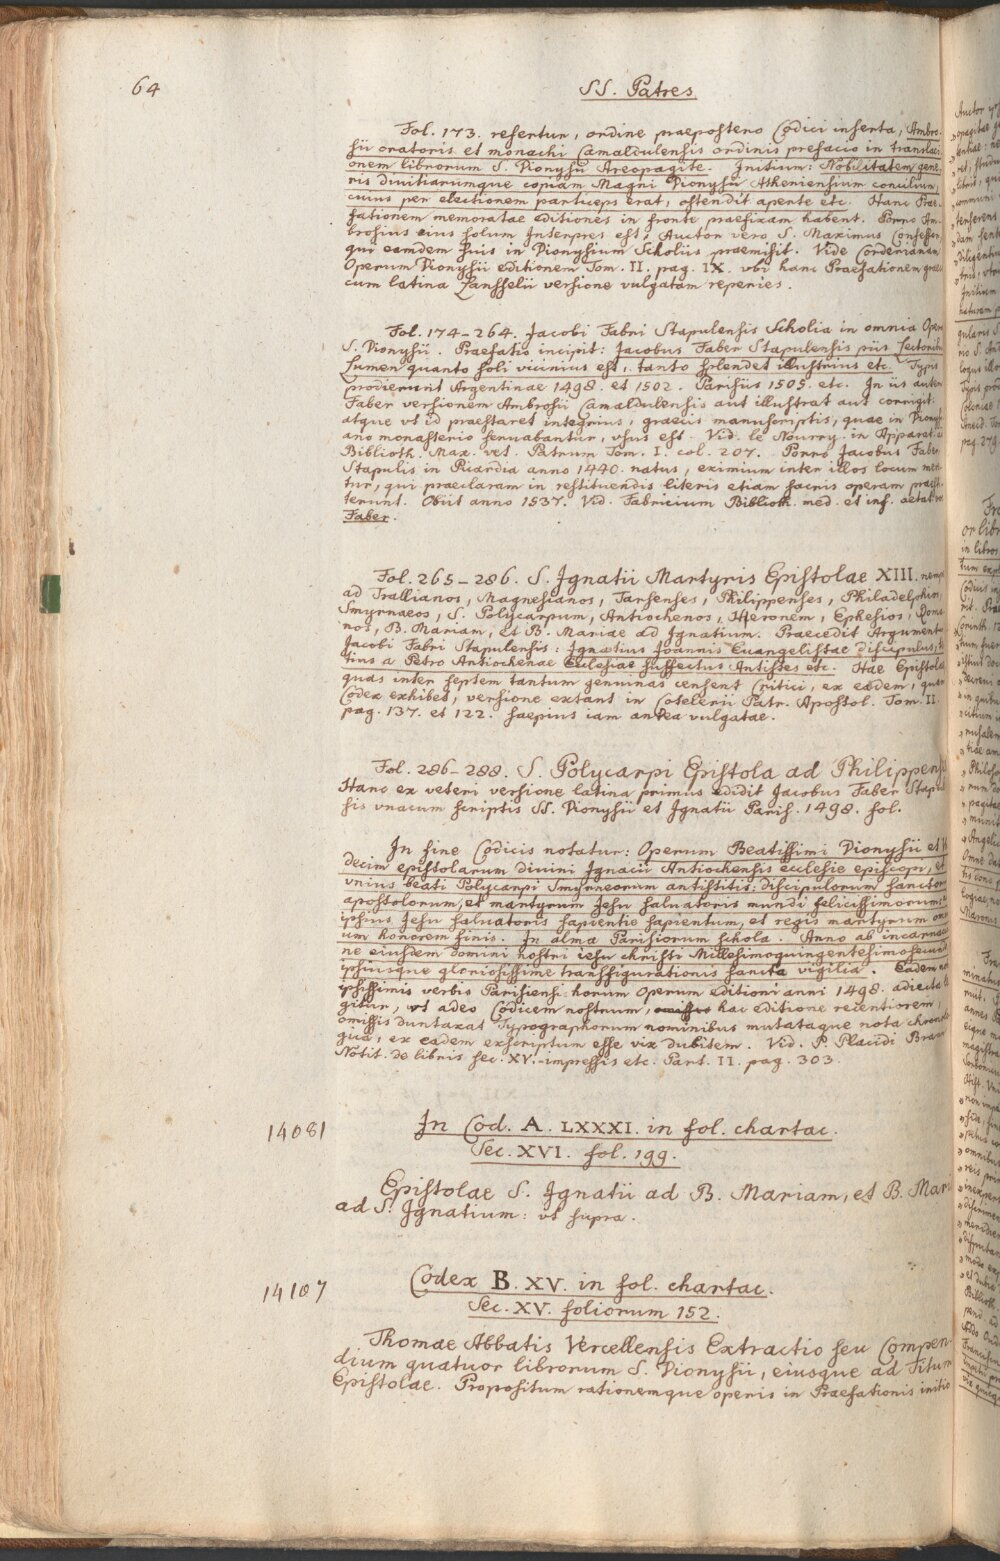 64
SS. Patres
Fol. 173. refertur, ordine praepostero Codici inserta, Ambro-
sii oratoris et monachi Camaldulensis ordinis prefacio in translaci-
onem librorum S. Dionysii Areopagite. Initium: Nobilitatem gene-
ris divitiarumque copiam Magni Dionysii Atheniensium concilium,
cuius per electionem particeps erat, ostendit aperte etc. Hanc Prae-
fationem memoratae editiones in fronte praefixam habent. Porro Am-
brosius eius solum Interpres est, Auctor vero S. Maximus Confessor,
qui eamdem suis in Dionysium Scholiis praemisit. Vide Corderianam
Operum Dionysii editionem Tom. II. pag. IX. vbi hanc Praefationem grae-
cum latina Lansselii versione vulgatam reperies.
Fol. 174-264. Jacobi Fabri Stapulensis Scholia in omnia Opera
S. Dionysii. Praefatio incipit: Jacobus Faber Stapulensis piis Lectoribus
Lumen quanto soli vicinius est, tanto splendet illustrius etc. Typis
prodierunt Argentinae 1498. et 1502. Parisiis 1505. etc. In iis autem
Faber versionem Ambrosii Camaldulensis aut illustrat aut corrigit:
atque vt id praestaret integrius, graecis manuscriptis, quae in Dionysi-
ano monasterio servabantur, vsus est. Vid. le Nourry in Apparat. ad
Biblioth. Max. vet. Patrum Tom. I. col. 207. Porro Jacobus Faber
Stapulis in Picardia anno 1440. natus, eximium inter illos locum mere-
tur, qui praeclaram in restituendis literis etiam sacris operam praesti-
terunt. Obiit anno 1537. Vid. Fabricium Biblioth. med. et inf. aetat. voc.
Faber.
Fol. 265-286. S. Ignatii Martyris Epistolae XIII. nempe
ad Trallianos, Magnesianos, Tarsenses, Philippenses, Philadelphin,
Smyrnaeos, S. Polycarpum, Antiochenos, Hieronem, Ephesios, Roma-
nos, B. Mariam, et B. Mariae ad Ignatium. Praecedit Argumentum
Jacobi Fabri Stapulensis: Ignatius Joannis Euangelistae discipulus, ter-
tius a Petro Antiochenae Ecclesiae suffectus Antistes etc. Hae Epistolae
quas inter septem tantum genuinas censent Critici, ex eadem, quam
Codex exhibet, versione extant in Cotelerii Patr. Apostol. Tom. II.
pag. 137. et 122. saepius iam antea vulgatae.
Fol. 286-288. S. Polycarpi Epistola ad Philippens.
Hanc ex veteri versione latina primus edidit Jacobus Faber Stapu-
sis vnacum scriptis SS. Dionysii et Ignatii Paris. 1498. fol.
In fine Codicis notatur: Operum Beatissimi Dionysii et V
decim epistolarum divini Ignacii Antiochensis ecclesie episcopi, et
vnius beati Polycarpi Smyrneorum antistitis: discipulorum sanctorum
apostolorum, et martyrum Jesu saluatoris mundi felicissimorum:
ipsius Jesu saluatoris sapientie sapientum, et regis martyrum omni-
um honorem finis. In alma Parisiorum schola. Anno ab incarnacio-
ne eiusdem domini nostri iesu christi Millesimoquingentesimosecundo
ipsiusque gloriosissime transfigurationis sancta vigilia. Eadem nota
ipsissimis verbis Parisiensi horum Operum editioni anni 1498. adiecta le-
gitur, vt adeo Codicem nostrum, hac editione recentiorem,
omissis duntaxat Typographorum nominibus mutataque nota chronolo-
gica, ex eadem exscriptum esse vix dubitem. Vid. P. Placidi Braun
Notit. de libris sec. XV. impressis etc. Part. II. pag. 303.
14081
In Cod. A. LXXXI. in fol. chartac.
Sec. XVI. fol. 199.
Epistolae S. Ignatii ad B. Mariam, et B. Mari
ad S. Ignatium: vt supra.
14107
Codex B. XV. in fol. chartac.
Sec. XV. foliorum 152.
Thomae Abbatis Vercellensis Extractio seu Compen-
dium quatuor librorum S. Dionysii, eiusque ad Titum
Epistolae. Propositum rationemque operis in Praefationis initio